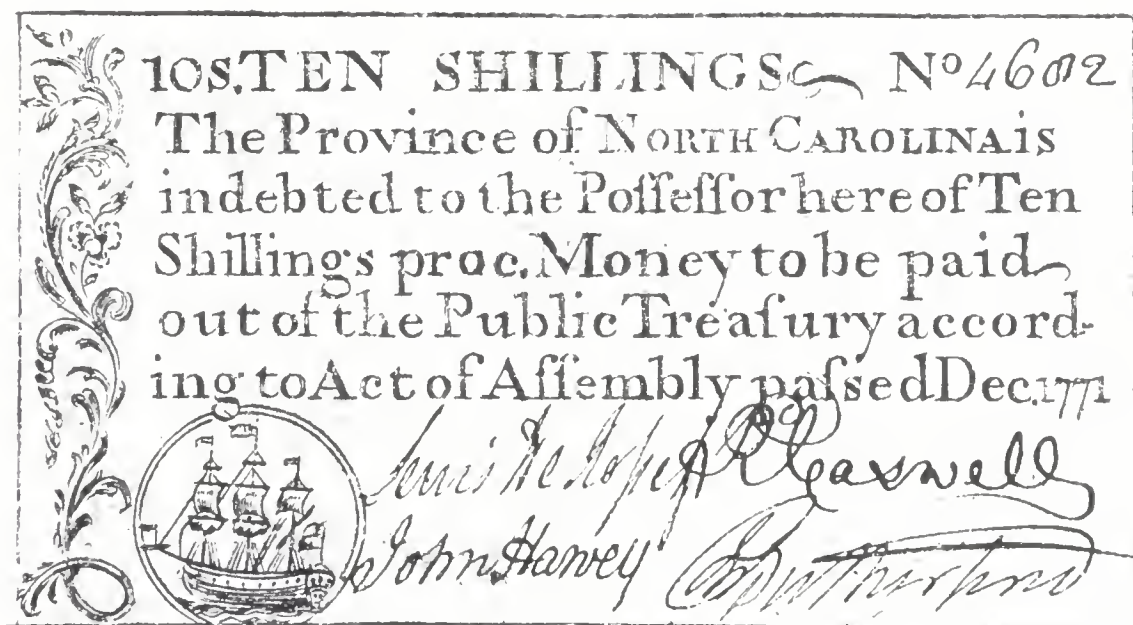 10s. TEN SHILLINGS No 4602
The Province of NORTH CAROLINA is
indebted to the Poſſeſſor here of Ten
Shillings proc. Money to be paid
out of the Public Treaſury accord-
ing to Act of Aſſembly paſsed Dec. 1771
Lewis De Roſſet R Caswell
John Harvey Jn Rutherfurd